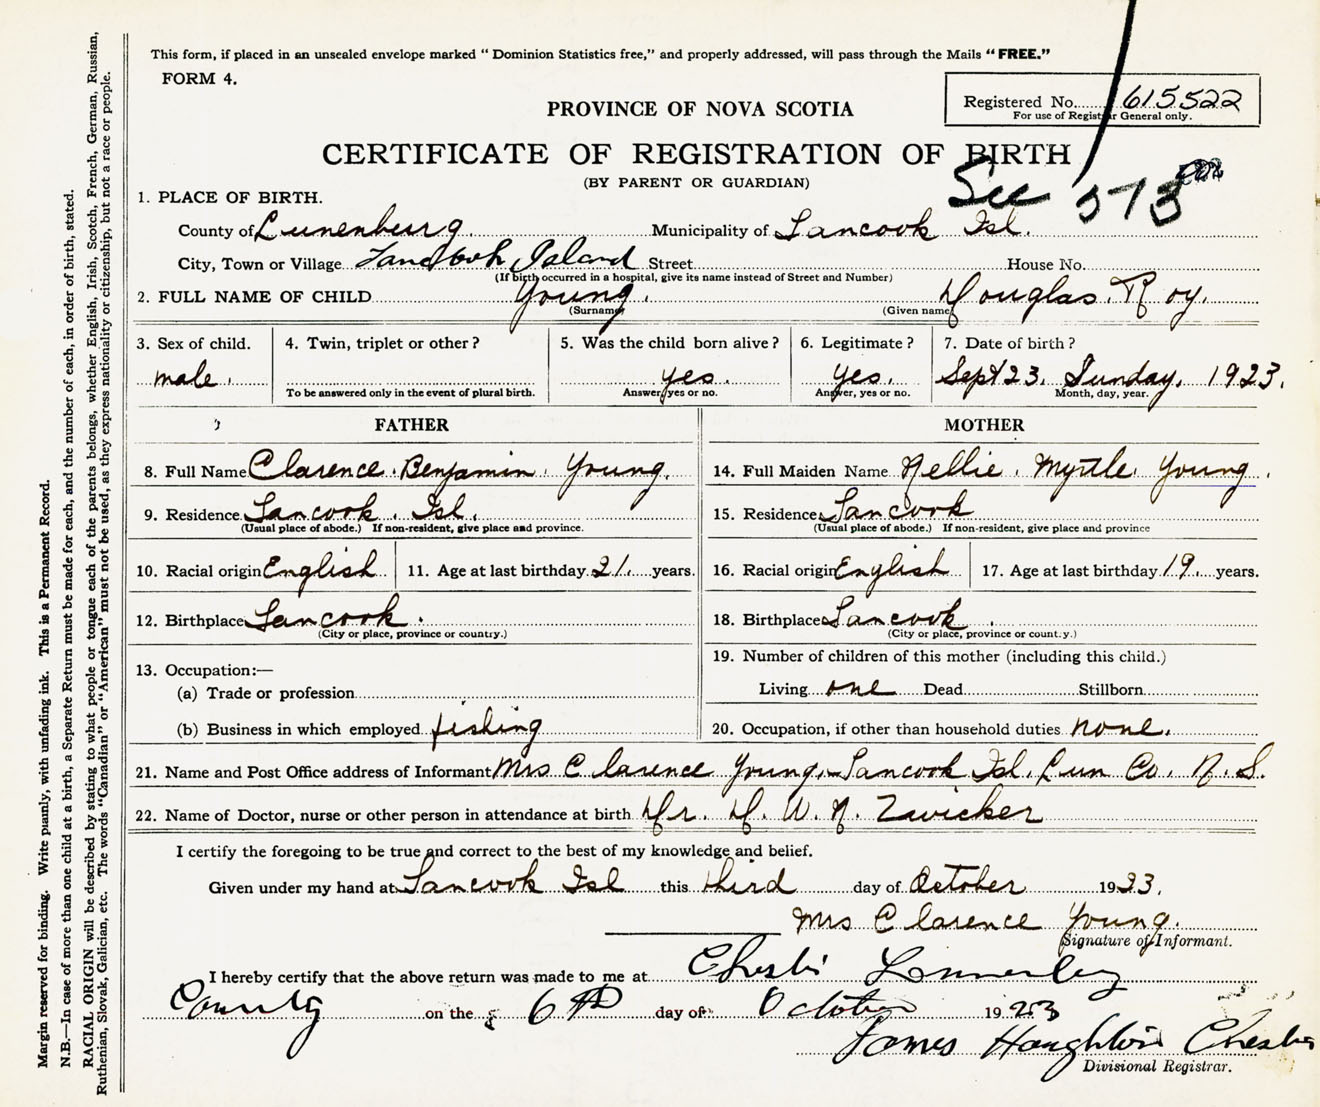 This form, if placed in an unsealed envelope marked "Dominion Statistics free," and properly addressed, will pass through the Mails "FREE."
FORM 4.
Registered No. 615522
For use of Registrar General only.
PROVINCE OF NOVA SCOTIA
CERTIFICATE OF REGISTRATION OF BIRTH
(BY PARENT OR GUARDIAN)
See 573
1. PLACE OF BIRTH.
County of Lunenburg Municipality of Tancook Isl.
City, Town or Village Tancook Island Street House No.
(If birth occurred in a hospital, give its name instead of Street and Number)
2. FULL NAME OF CHILD Young. Douglas. Roy.
(Surname) (Given name)
3. Sex of child. 4. Twin, triplet or other? 5. Was the child born alive? 6. Legitimate? 7. Date of birth?
male. yes. yes. Sept 23. Sunday. 1923.
To be answered only in the event of plural birth. Answer, yes or no. Answer, yes or no. Month, day, year.
FATHER MOTHER
8. Full Name Clarence. Benjamin. Young. 14. Full Maiden Name Nellie. Myrtle. Young.
9. Residence Tancook. Isl. 15. Residence Tancook
(Usual place of abode.) If non-resident, give place and province. (Usual place of abode.) If non-resident, give place and province
10. Racial origin English 11. Age at last birthday 21. years. 16. Racial origin English 17. Age at last birthday 19. years.
12. Birthplace Tancook. 18. Birthplace Tancook.
(City or place, province or country.) (City or place, province or country.)
13. Occupation:— 19. Number of children of this mother (including this child.)
(a) Trade or profession Living one Dead Stillborn
(b) Business in which employed fishing 20. Occupation, if other than household duties none.
21. Name and Post Office address of Informant Mrs Clarence Young. Tancook Isl. Lun Co. N. S.
22. Name of Doctor, nurse or other person in attendance at birth Dr. D. W. N. Zwicker
I certify the foregoing to be true and correct to the best of my knowledge and belief.
Given under my hand at Tancook Isl this third day of October 1923.
Mrs Clarence Young.
Signature of Informant.
I hereby certify that the above return was made to me at Chester Lunenburg
County on the 6th day of October 1923
James Houghton Chester
Divisional Registrar.
Margin reserved for binding. Write plainly, with unfading ink. This is a Permanent Record.
N.B.—In case of more than one child at a birth, a Separate Return must be made for each, and the number of each, in order of birth, stated.
RACIAL ORIGIN will be described by stating to what people or tongue each of the parents belongs, whether English, Irish, Scotch, French, German, Russian,
Ruthenian, Slovak, Galician, etc. The words "Canadian" or "American" must not be used, as they express nationality or citizenship, but not a race or people.